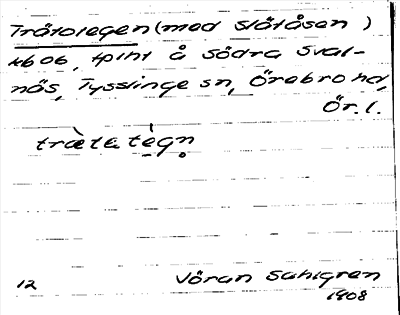 Trätotegen (med Slätåsen)
Åbob, tpiht å Södra Sval-
näs, Tysslinge sn, Örebro hd,
Ör. l.
træ̀ta tègn
12 Jöran Sahlgren
1908